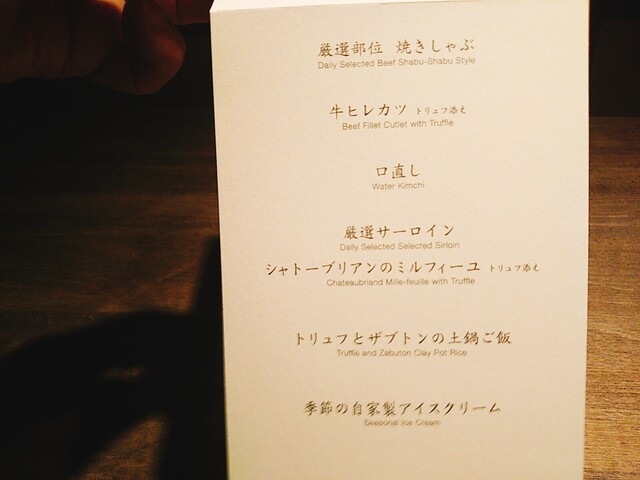 厳選部位 焼きしゃぶ
Daily Selected Beef Shabu-Shabu Style
牛ヒレカツ トリュフ添え
Beef Fillet Cutlet with Truffle
口直し
Water Kimchi
厳選サーロイン
Daily Selected Selected Sirloin
シャトーブリアンのミルフィーユ トリュフ添え
Chateaubriand Mille-feuille with Truffle
トリュフとザブトンの土鍋ご飯
Truffle and Zabuton Clay Pot Rice
季節の自家製アイスクリーム
Seasonal Ice Cream